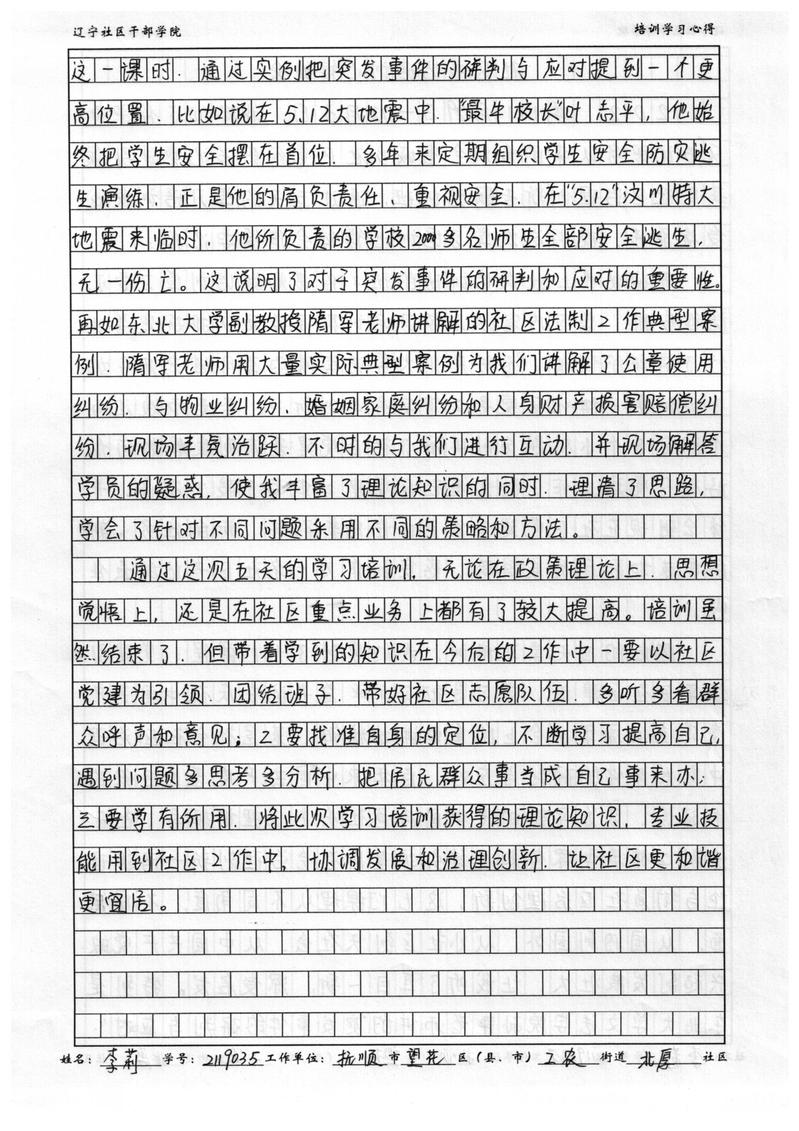 辽宁社区干部学院
培训学习心得
这一课时.通过实例把突发事件的研判与应对提到一个更
高位置.比如说在5.12大地震中."最牛校长"叶志平,他始
终把学生安全摆在首位.多年来定期组织学生安全防灾逃
生演练.正是他的肩负责任、重视安全.在"5.12"汶川特大
地震来临时.他所负责的学校2000多名师生全部安全逃生,
无一伤亡。这说明了对于突发事件的研判和应对的重要性。
再如东北大学副教授隋军老师讲解的社区法制工作典型案
例.隋军老师用大量实际典型案例为我们讲解了公章使用
纠纷.与物业纠纷、婚姻家庭纠纷和人身财产损害赔偿纠
纷.现场丰氛治跃.不时的与我们进行互动.并现场解答
学员的疑惑,使我丰富了理论知识的同时.理清了思路,
学会了针对不同问题采用不同的策略和方法。
通过这次五天的学习培训,无论在政策理论上.思想
觉悟上,还是在社区重点业务上都有了较大提高。培训虽
然结束了.但带着学到的知识在今后的工作中一要以社区
党建为引领.团结班子.带好社区志愿队伍.多听多看群
众呼声和意见;2要找准自身的定位,不断学习提高自己,
遇到问题多思考多分析.把居民群众事当成自己事来办;
三要学有所用.将此次学习培训获得的理论知识,专业技
能用到社区工作中,协调发展和治理创新.让社区更和谐
更宜居。
姓名:李莉 学号:2119035 工作单位:抚顺市望花区(县、市)工农街道北厚社区